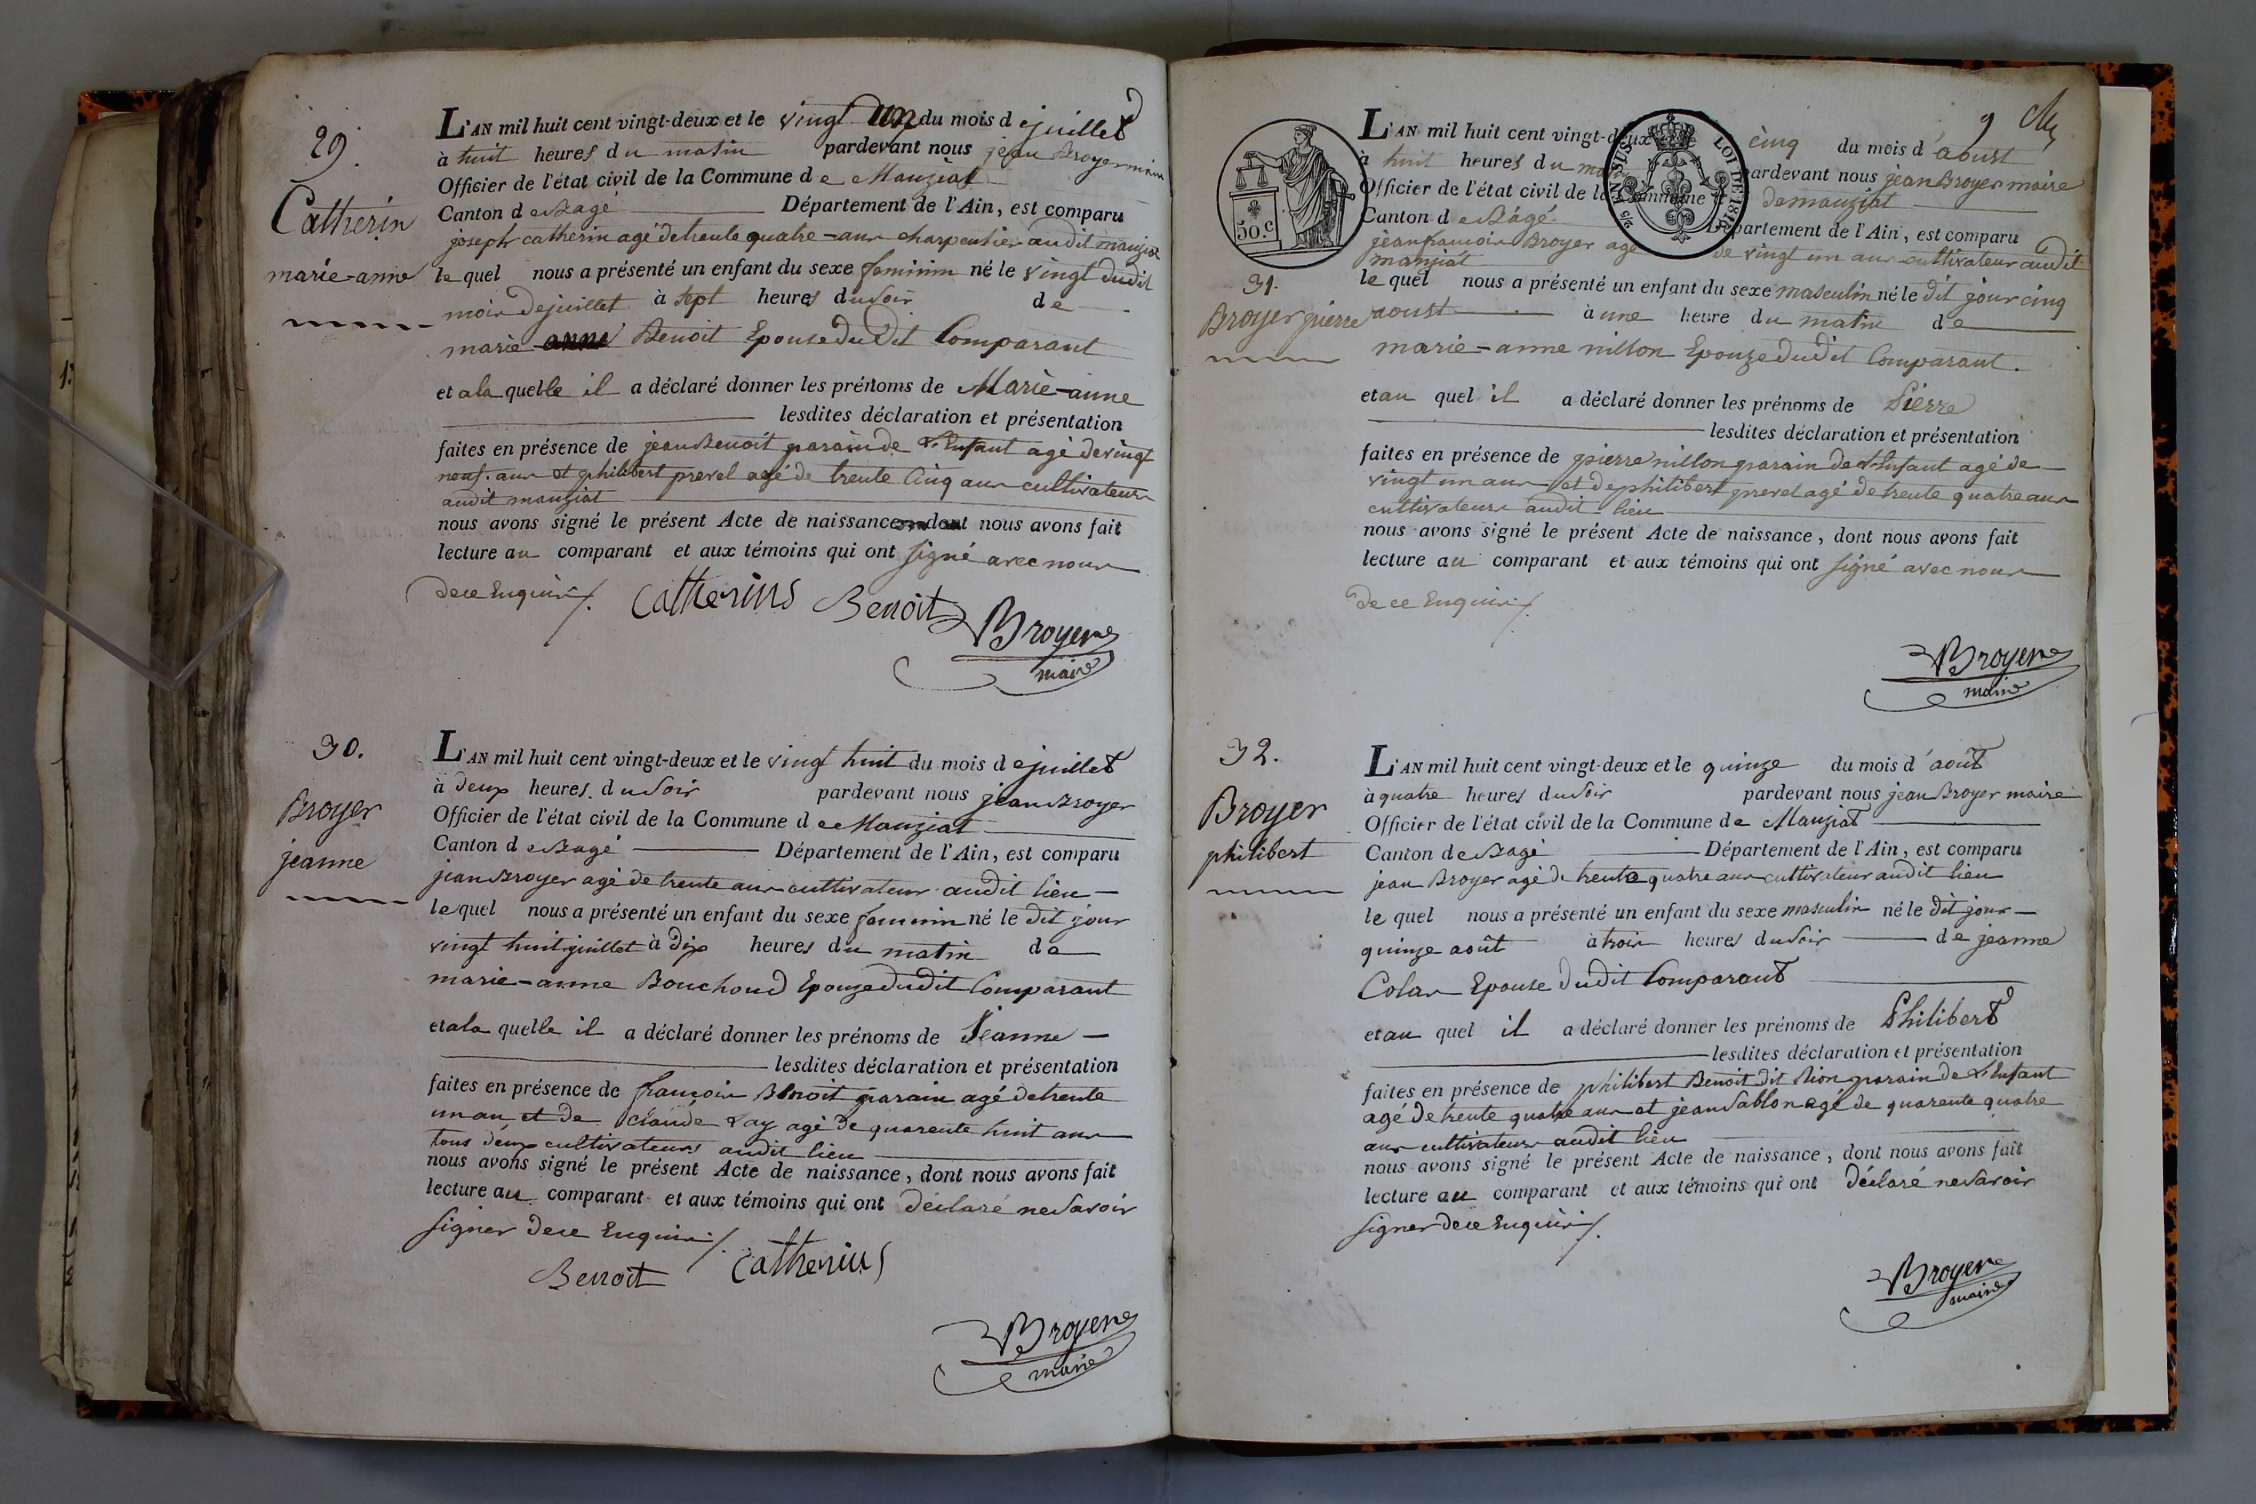 29.
Catherin
marie-anne
L'AN mil huit cent vingt-deux et le vingt un du mois de juillet
à huit heures du matin pardevant nous jean Broyer maire
Officier de l'état civil de la Commune de Manziat
Canton de Bagé Département de l'Ain, est comparu
joseph catherin agé de trente quatre ans charpentier audit manziat
le quel nous a présenté un enfant du sexe feminin né le vingt dudit
mois de juillet à sept heures du soir de
marie Benoit Epouse du dit Comparant
et a la quelle il a déclaré donner les prénoms de Marie-anne
lesdites déclaration et présentation
faites en présence de jean Benoit parain de L'Enfant agé de vingt
neuf ans et philibert prevel agé de trente cinq ans cultivateurs
audit manziat
nous avons signé le présent Acte de naissance dont nous avons fait
lecture au comparant et aux témoins qui ont signé avec nous
de ce Enquis ./.
Catherins Benoit Broyer
maire
30.
Broyer
jeanne
L'AN mil huit cent vingt-deux et le vingt huit du mois de juillet
à deux heures du soir pardevant nous jean Broyer
Officier de l'état civil de la Commune de Manziat
Canton de Bagé Département de l'Ain, est comparu
jean Broyer agé de trente ans cultivateur audit lieu
le quel nous a présenté un enfant du sexe feminin né le dit jour
vingt huit juillet à dix heures du matin de
marie-anne Bouchoud Epouze dudit Comparant
et a la quelle il a déclaré donner les prénoms de Jeanne
lesdites déclaration et présentation
faites en présence de françois Benoit parain agé de trente
un an et de claude Lay agé de quarente huit ans
tous deux cultivateurs audit lieu
nous avons signé le présent Acte de naissance, dont nous avons fait
lecture au comparant et aux témoins qui ont déclaré ne savoir
signer de ce Enquis ./.
Benoit Catherins
Broyer
maire
9
50.c
LOI DE 1816
L'AN mil huit cent vingt-deux et le cinq du mois d'aoust
à huit heures du matin pardevant nous jean Broyer maire
Officier de l'état civil de la Commune de manziat
Canton de Bagé Département de l'Ain, est comparu
jean françois Broyer agé de vingt un ans cultivateur audit
manziat
31.
Broyer pierre
le quel nous a présenté un enfant du sexe masculin né le dit jour cinq
aoust à une heure du matin de
marie-anne nillon Epouze dudit Comparant.
et au quel il a déclaré donner les prénoms de Pierre
lesdites déclaration et présentation
faites en présence de pierre nillon parain de L'Enfant agé de
vingt un ans et de philibert prevel agé de trente quatre ans
cultivateurs audit lieu
nous avons signé le présent Acte de naissance, dont nous avons fait
lecture au comparant et aux témoins qui ont signé avec nous
de ce Enquis ./.
Broyer
maire
32.
Broyer
philibert
L'AN mil huit cent vingt-deux et le quinze du mois d'août
à quatre heures du soir pardevant nous jean Broyer maire
Officier de l'état civil de la Commune de Manziat
Canton de Bagé Département de l'Ain, est comparu
jean Broyer agé de trente quatre ans cultivateur audit lieu
le quel nous a présenté un enfant du sexe masculin né le dit jour
quinze août à trois heures du soir de jeanne
Colas Epouse dudit Comparant
et au quel il a déclaré donner les prénoms de Philibert
lesdites déclaration et présentation
faites en présence de philibert Benoit dit Lion parain de L'Enfant
agé de trente quatre ans et jean Sablon agé de quarente quatre
ans cultivateurs audit lieu
nous avons signé le présent Acte de naissance, dont nous avons fait
lecture au comparant et aux témoins qui ont déclaré ne savoir
signer de ce Enquis ./.
Broyer
maire